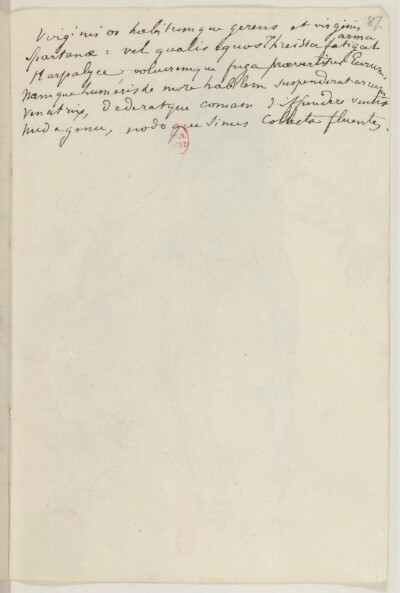 87.
Virginis os habitumque gerens et virginis arma
Spartanæ: vel qualis equos Threissa fatigat
Harpalyce volucremque fuga prævertitur Eurum.
Namque humeris de more habilem suspenderat arcum
Venatrix, dederatque comam diffundere ventis
nuda genu, nodo que sinus Collecta fluentes.